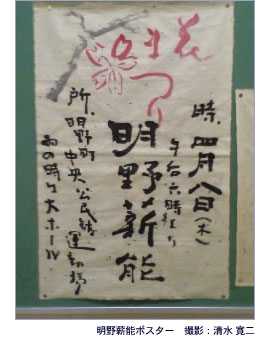 花
まつり
時、四月八日(木)
午后六時より
明野薪能
所、明野町
中央公民館運動場
雨の時は大ホール
明野薪能ポスター　撮影：清水 寛二